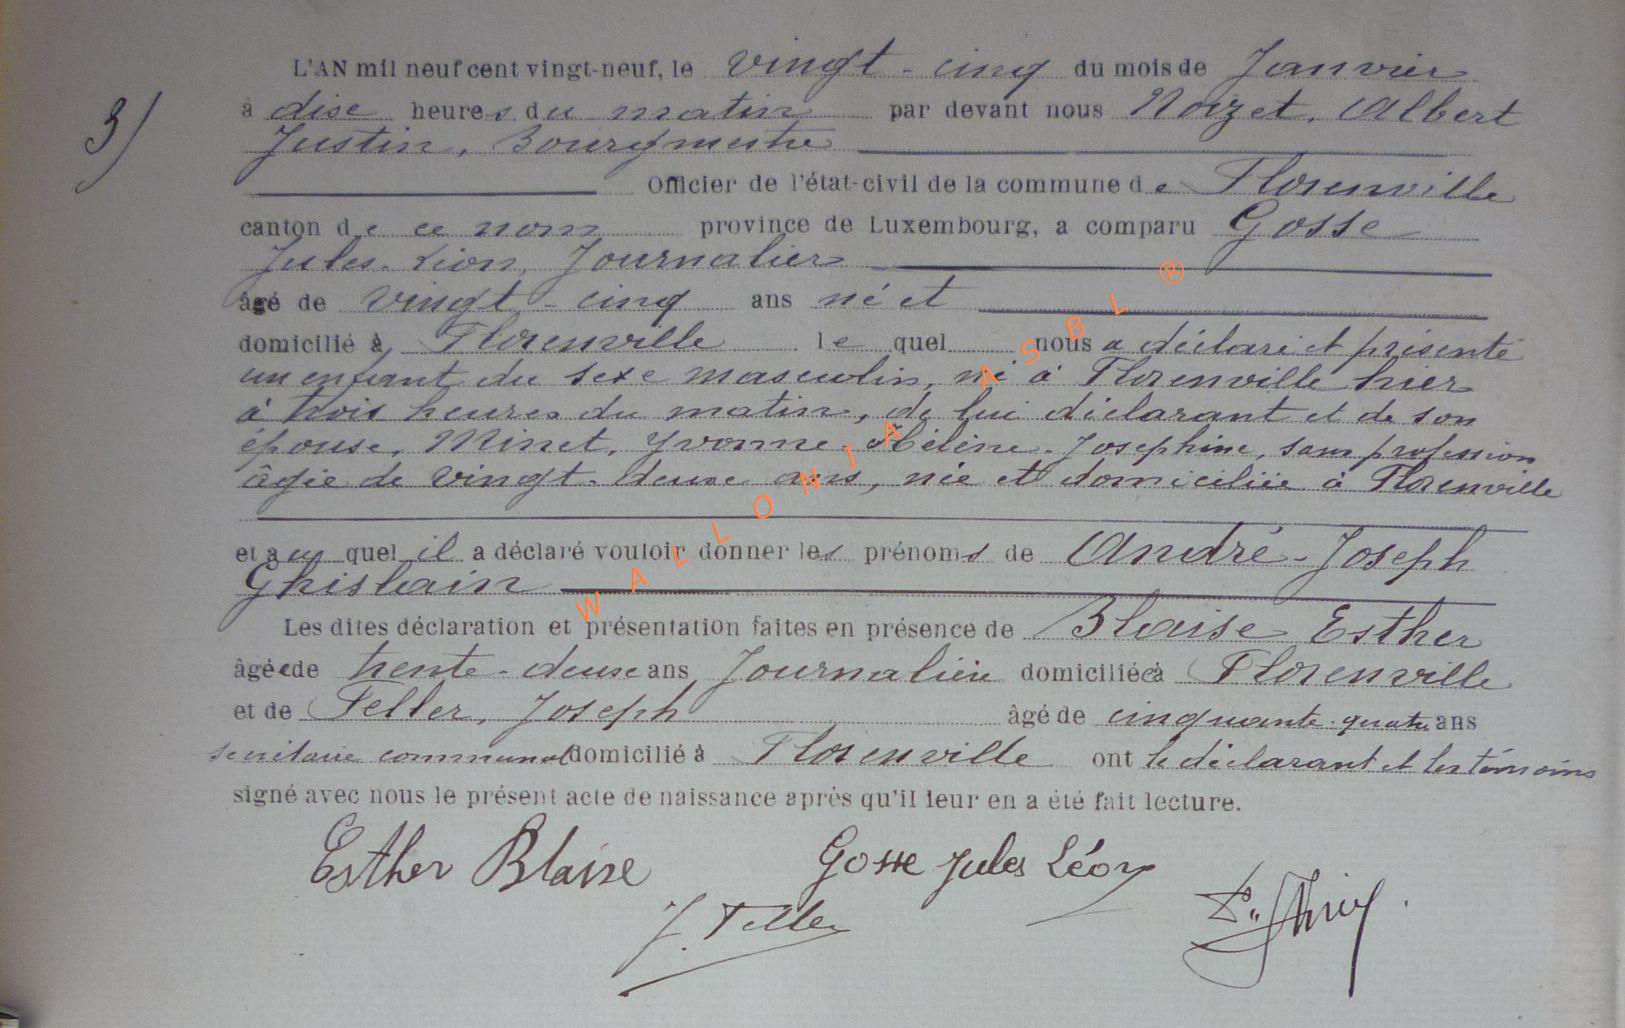 L'AN mil neuf cent vingt-neuf, le vingt-cinq du mois de Janvier
3) à dixe heures du matin par devant nous Noizet, Albert
Justin, Bourgmestre
Officier de l'état-civil de la commune de Florenville
canton de ce nom province de Luxembourg, a comparu Gosse
Jules-Léon, Journalier
âgé de vingt-cinq ans né et
domicilié à Florenville lequel nous a déclaré et présenté
un enfant du sexe masculin, né à Florenville hier
à trois heures du matin, de lui déclarant et de son
épouse, Minet, Yvonne-Hélène-Josephine, sans profession
âgée de vingt-deux ans, née et domiciliée à Florenville
et auquel il a déclaré vouloir donner les prénoms de André-Joseph
Ghislain
Les dites déclaration et présentation faites en présence de Blaise Esther
âgée de trente-deux ans, Journalière domiciliée à Florenville
et de Feller, Joseph âgé de cinquante-quatre ans
secrétaire communal domicilié à Florenville ont le déclarant et les témoins
signé avec nous le présent acte de naissance après qu'il leur en a été fait lecture.
Esther Blaise Gosse Jules Léon
J. Feller
WALLONIA ASBL ®